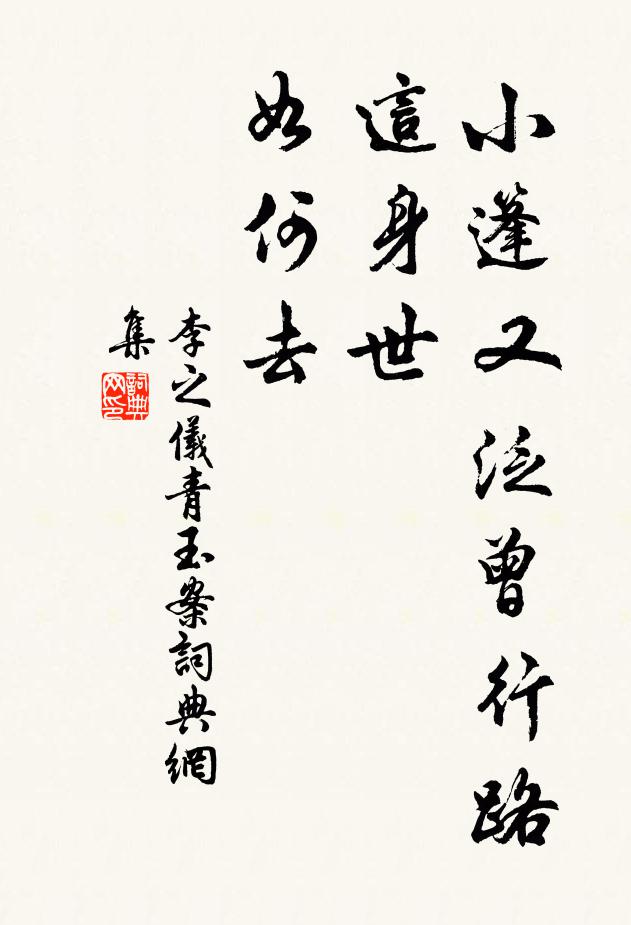 小蓬又泛曾行路
這身世
如何去
李之儀青玉案詞典網
集
詞典網印